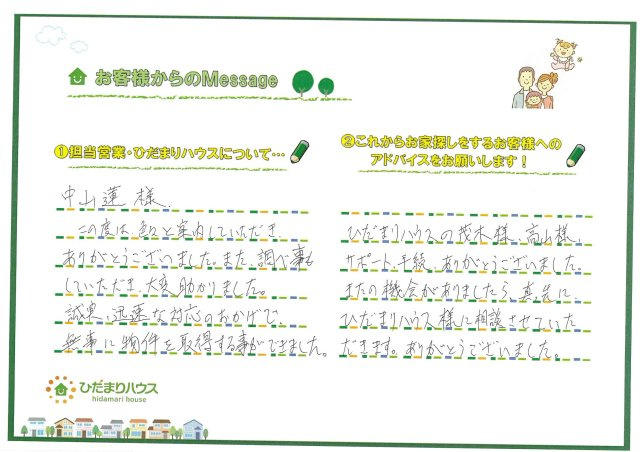 お客様からのMessage
①担当営業・ひだまりハウスについて…
中山蓮様、
この度は、色々と案内していただき、
ありがとうございました。また、調べ事も
していただき、大変助かりました。
誠実、迅速な対応のおかげで、
無事に物件を取得する事ができました。
②これからお家探しをするお客様への
アドバイスをお願いします！
ひだまりハウスの茂木様、高山様、
サポート、手続、ありがとうございました。
またの機会がありましたら、真先に、
ひだまりハウス様に相談させていた
だきます。ありがとうございました。
ひだまりハウス
hidamari house